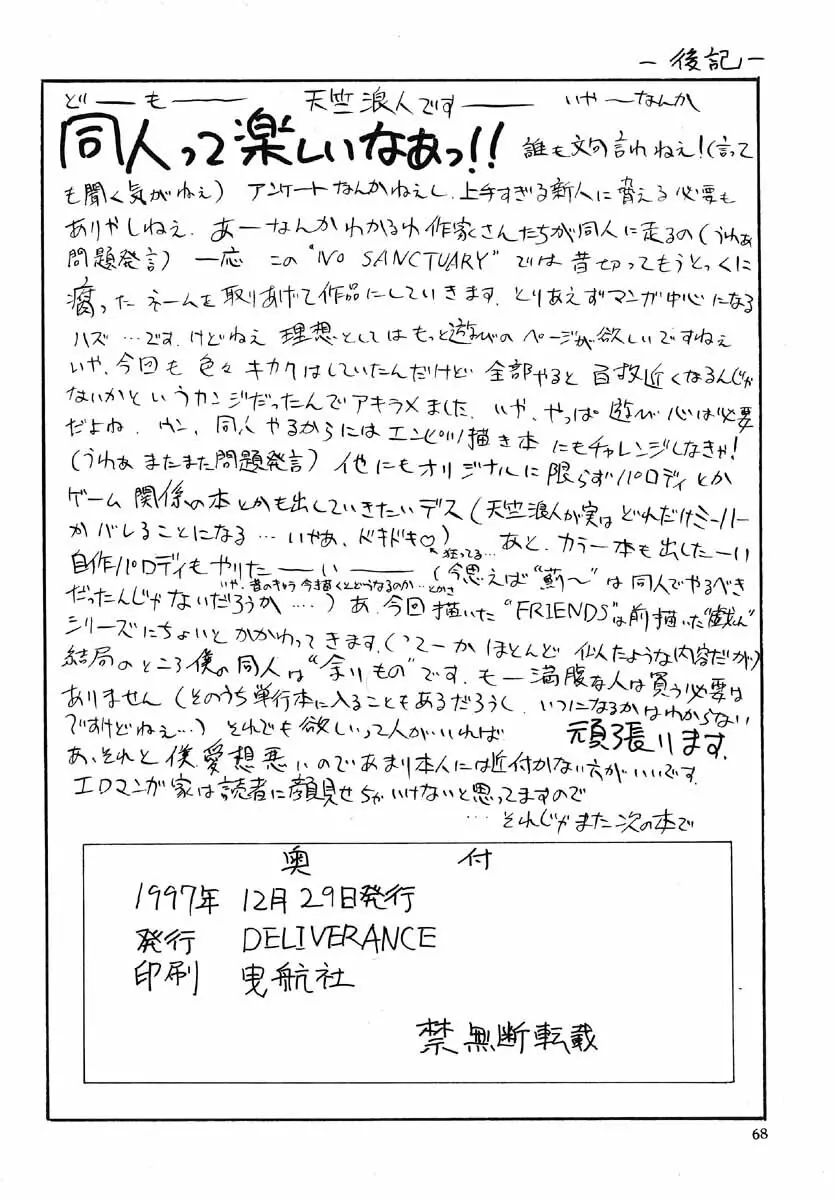 －後記－
ど――も―― 天竺浪人です―― いや～なんか
同人って楽しいなあっ!! 誰も文句言わねえ!(言って
も聞く気がねえ) アンケートなんかねえし、上手すぎる新人に脅える必要も
ありやしねえ. あーなんかわかるわ作家さんたちが同人に走るの(うわぁ
問題発言) 一応 この"NO SANCTUARY"では昔切ってもうとっくに
腐ったネームを取りあげて作品にしていきます. とりあえずマンガ中心になる
ハズ…です. けどねえ 理想としてはもっと遊びのページが欲しいですねえ
いや、今回も色々キカクはしていたんだけど 全部やると百枚近くなるんじゃ
ないかというカンジだったんでアキラメました. いや、やっぱ遊び心は必要
だよね. ウン. 同人やるからにはエンピツ描き本にもチャレンジしなきゃ!
(うわぁ またまた問題発言) 他にもオリジナルに限らずパロディとか
ゲーム関係の本とかも出していきたいデス(天竺浪人が実はどれだけミーハー
かバレることになる…いやあ、ドキドキ♡) あと、カラー本も出したーい
狂ってる…
自作パロディもやりた――い―― (今思えば"薊～"は同人でやるべき
いや、昔のきゃら今描くとどうなるのか…とかさ
だったんじゃないだろうか…) あ、今回描いた"FRIENDS"は前描いた"戯れ"
シリーズにちょいとかかわってきます.(つてーかほとんど似たような内容だが)
結局のところ僕の同人は"余りもの"です. もー満腹な人は買う必要は
ありません(そのうち単行本に入ることもあるだろうし、いつになるかはわからない
ですけどねぇ…) それでも欲しいって人がいれば 頑張ります.
あ、それと僕、愛想悪いのであまり本人には近付かない方がいいです.
エロマンガ家は読者に顔見せちゃいけないと思ってますので
…それじゃまた次の本で
奥付
1997年 12月29日発行
発行 DELIVERANCE
印刷 曳航社
禁無断転載
68